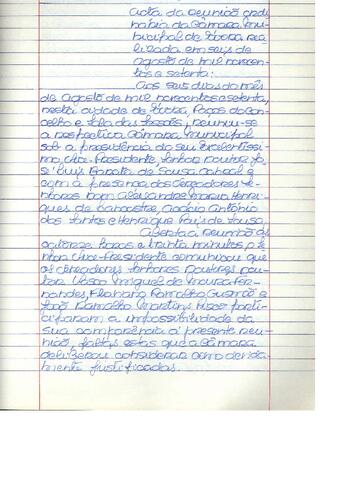 Acta da reunião ordi
nária da Câmara Mu
nicipal de Évora rea
lizada em seis de
agosto de mil novecen
tos e setenta:
Aos seis dias do mês
de Agosto de mil novecentos e setenta,
nesta cidade de Évora, Paços do Con
celho e Sala das Sessões, reuniu-se
a respectiva Câmara Municipal
sob a presidência do seu Excelentíssi
mo Vice-Presidente, Senhor Doutor Jo
sé Luís Barata de Sousa Cabral e
com a presença dos Vereadores Se
nhores Dom Alexandre Maria Henri
ques de Lancastre, António
dos Santos e Henrique Pais de Sousa.
Aberta a reunião às
catorze horas e trinta minutos, o Se
nhor Vice-Presidente comunicou que
os Vereadores Senhores Doutores
Vasco Miguel de Moura Fer
nandes, Floriano Ramalho Gusmão e
João Ramalho Martins Fisco parti
ciparam a impossibilidade da
sua comparência à presente reu
nião, faltas estas que a Câmara
deliberou considerar como devida
mente justificadas.